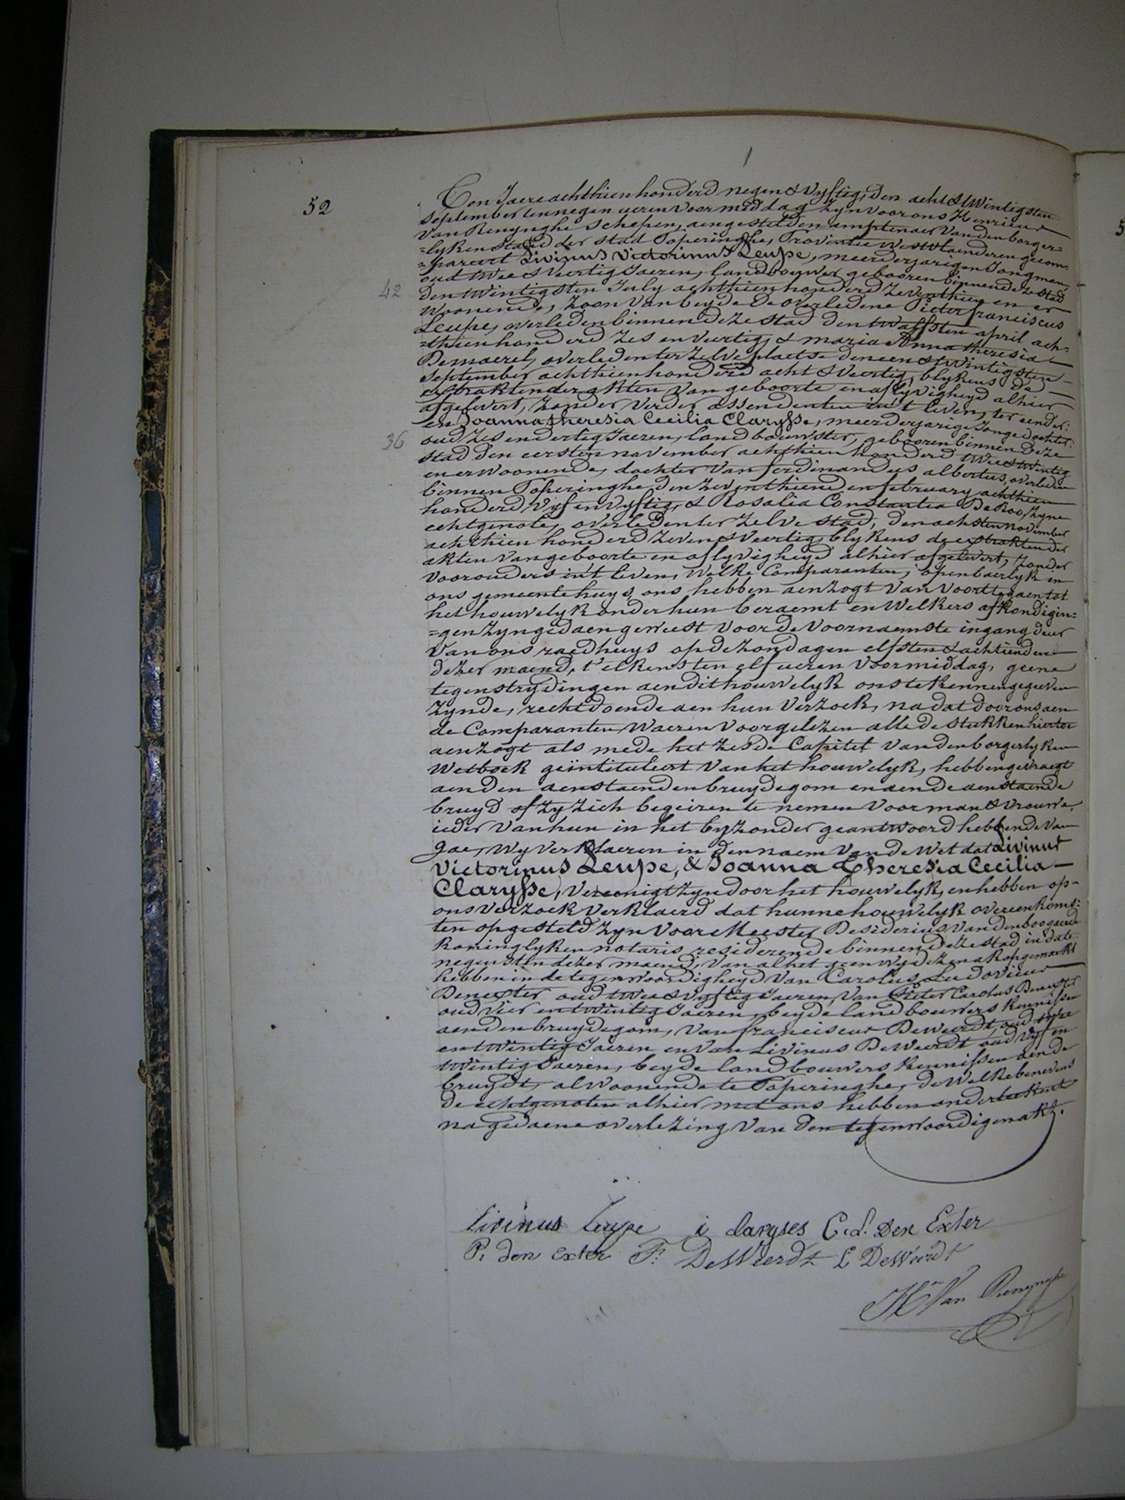 52
Ten Jaere achthien honderd negen & Vyftig, den acht & Twintigsten
September ten negen ueren voormiddag Zyn voor ons Henricus
Van Renynghe Schepen, aengestelden amptenaer Van den borger-
=lyken Staet der Stad Poperinghe, Provintie Westvlaenderen gecom-
=pareert Livinus Victorinus Leupe, meerderjarigen Jongman,
oud twee & Veertig Jaeren, landbouwer gebooren binnen deze Stad
42
den twintigsten July achthien honderd Zeventhien en er
Woonende, Zoon Van beyde de overledene Pieter franciscus
Leupe, overleden binnen deze Stad den twaelfsten april ach-
=thien honderd Zes en Veertig, & maria Anna theresia
Demaerel, overleden ter Zelve plaetse den een & twintigsten
September achthien honderd acht & Veertig, blykens de
extrakten der akten Van geboorte en aflyvigheyd alhier
afgelevert, Zonder Verder assendenten in't leven, ter eender:
en Joanna theresia Cecilia Clarysse, meerderjarige Jonge dochter
36
oud Zes en dertig Jaeren, landbouwster, gebooren binnen deze
Stad den eersten november achthien honderd twee & twintig
en er woonende, dochter Van ferdinandus albertus, overleden
binnen Poperinghe, den Zeventhienden february achthien
honderd Vyf en Vyftig, & Rosalia Constantia DeRoo, Zyne
echtgenote, overleden ter Zelve stad, den achsten november
achthien honderd Zeven & Veertig, blykens de extrakten der
akten Van geboorte en aflyvigheyd alhier afgelevert, Zonder
Voorouders in't leven, Welke Comparanten, openbaerlyk in
ons gemeentehuys ons hebben aenzogt Van Voort te gaen tot
het houwelyk onder hun beraemt en Welkers afkondigin-
=gen Zyn gedaen geweest Voor de Voornaemste ingang deur
Van ons raedhuys op de Zondagen elfsten & achtienden
dezer maend, t'elkens ten elf ueren Voormiddag, geene
tegenstrydingen aen dit houwelyk ons te kennen gegeven
Zynde, recht doende aen hun Verzoek, na dat door ons aen
de Comparanten Waeren Voorgelezen alle de Stukken hiertoe
aenzogt als mede het Zesde Capitel Van den borgerlyken
Wetboek geïntituleert Van het houwelyk, hebben gevraegt
aen den aenstaenden bruydegom en aen de aenstaende
bruyd of Zy Zich begeiren te nemen Voor man & Vrouwe,
ieder Van hun in het byzonder geantwoord hebbende Van
Jae, Wy Verklaeren in den naem Van de Wet dat Livinus
Victorinus Leupe, & Joanna Theresia Cecilia
Clarysse, Vereenigt Zyn door het houwelyk, en hebben op-
ons Verzoek Verklaerd dat hunne houwelyk overeenkoms-
ten opgesteld Zyn Voor Meester Desiderius Van den boogaerde
Koninglyken notaris, residerende binnen deze Stad in date
negensten dezer maend, Van al het geen wy dezen akt opgemaekt
hebben in de tegenwoordigheyd Van Carolus Ludovicus
Denexter oud twee & Vyftig Jaeren, Van Pieter Carolus Denexter
oud Vier en twintig Jaeren, beyde landbouwers Kennissen
aen den bruydegom, Van franciscus DeWeerdt, oud
en twintig Jaeren en Van Livinus DeWeerdt oud Vyf en
twintig Jaeren, beyde landbouwers Kennissen aen de
bruydt, al woonende te Poperinghe, de Welke benevens
de echtgenoten alhier met ons hebben onderteekent
na gedaene overlezing Van den tegenwoordigen akt.
livinus leupe i claryses C.d. Den Exter
P. den Exter F. DeWeerdt L DeWeerdt
Hn Van Renynghe